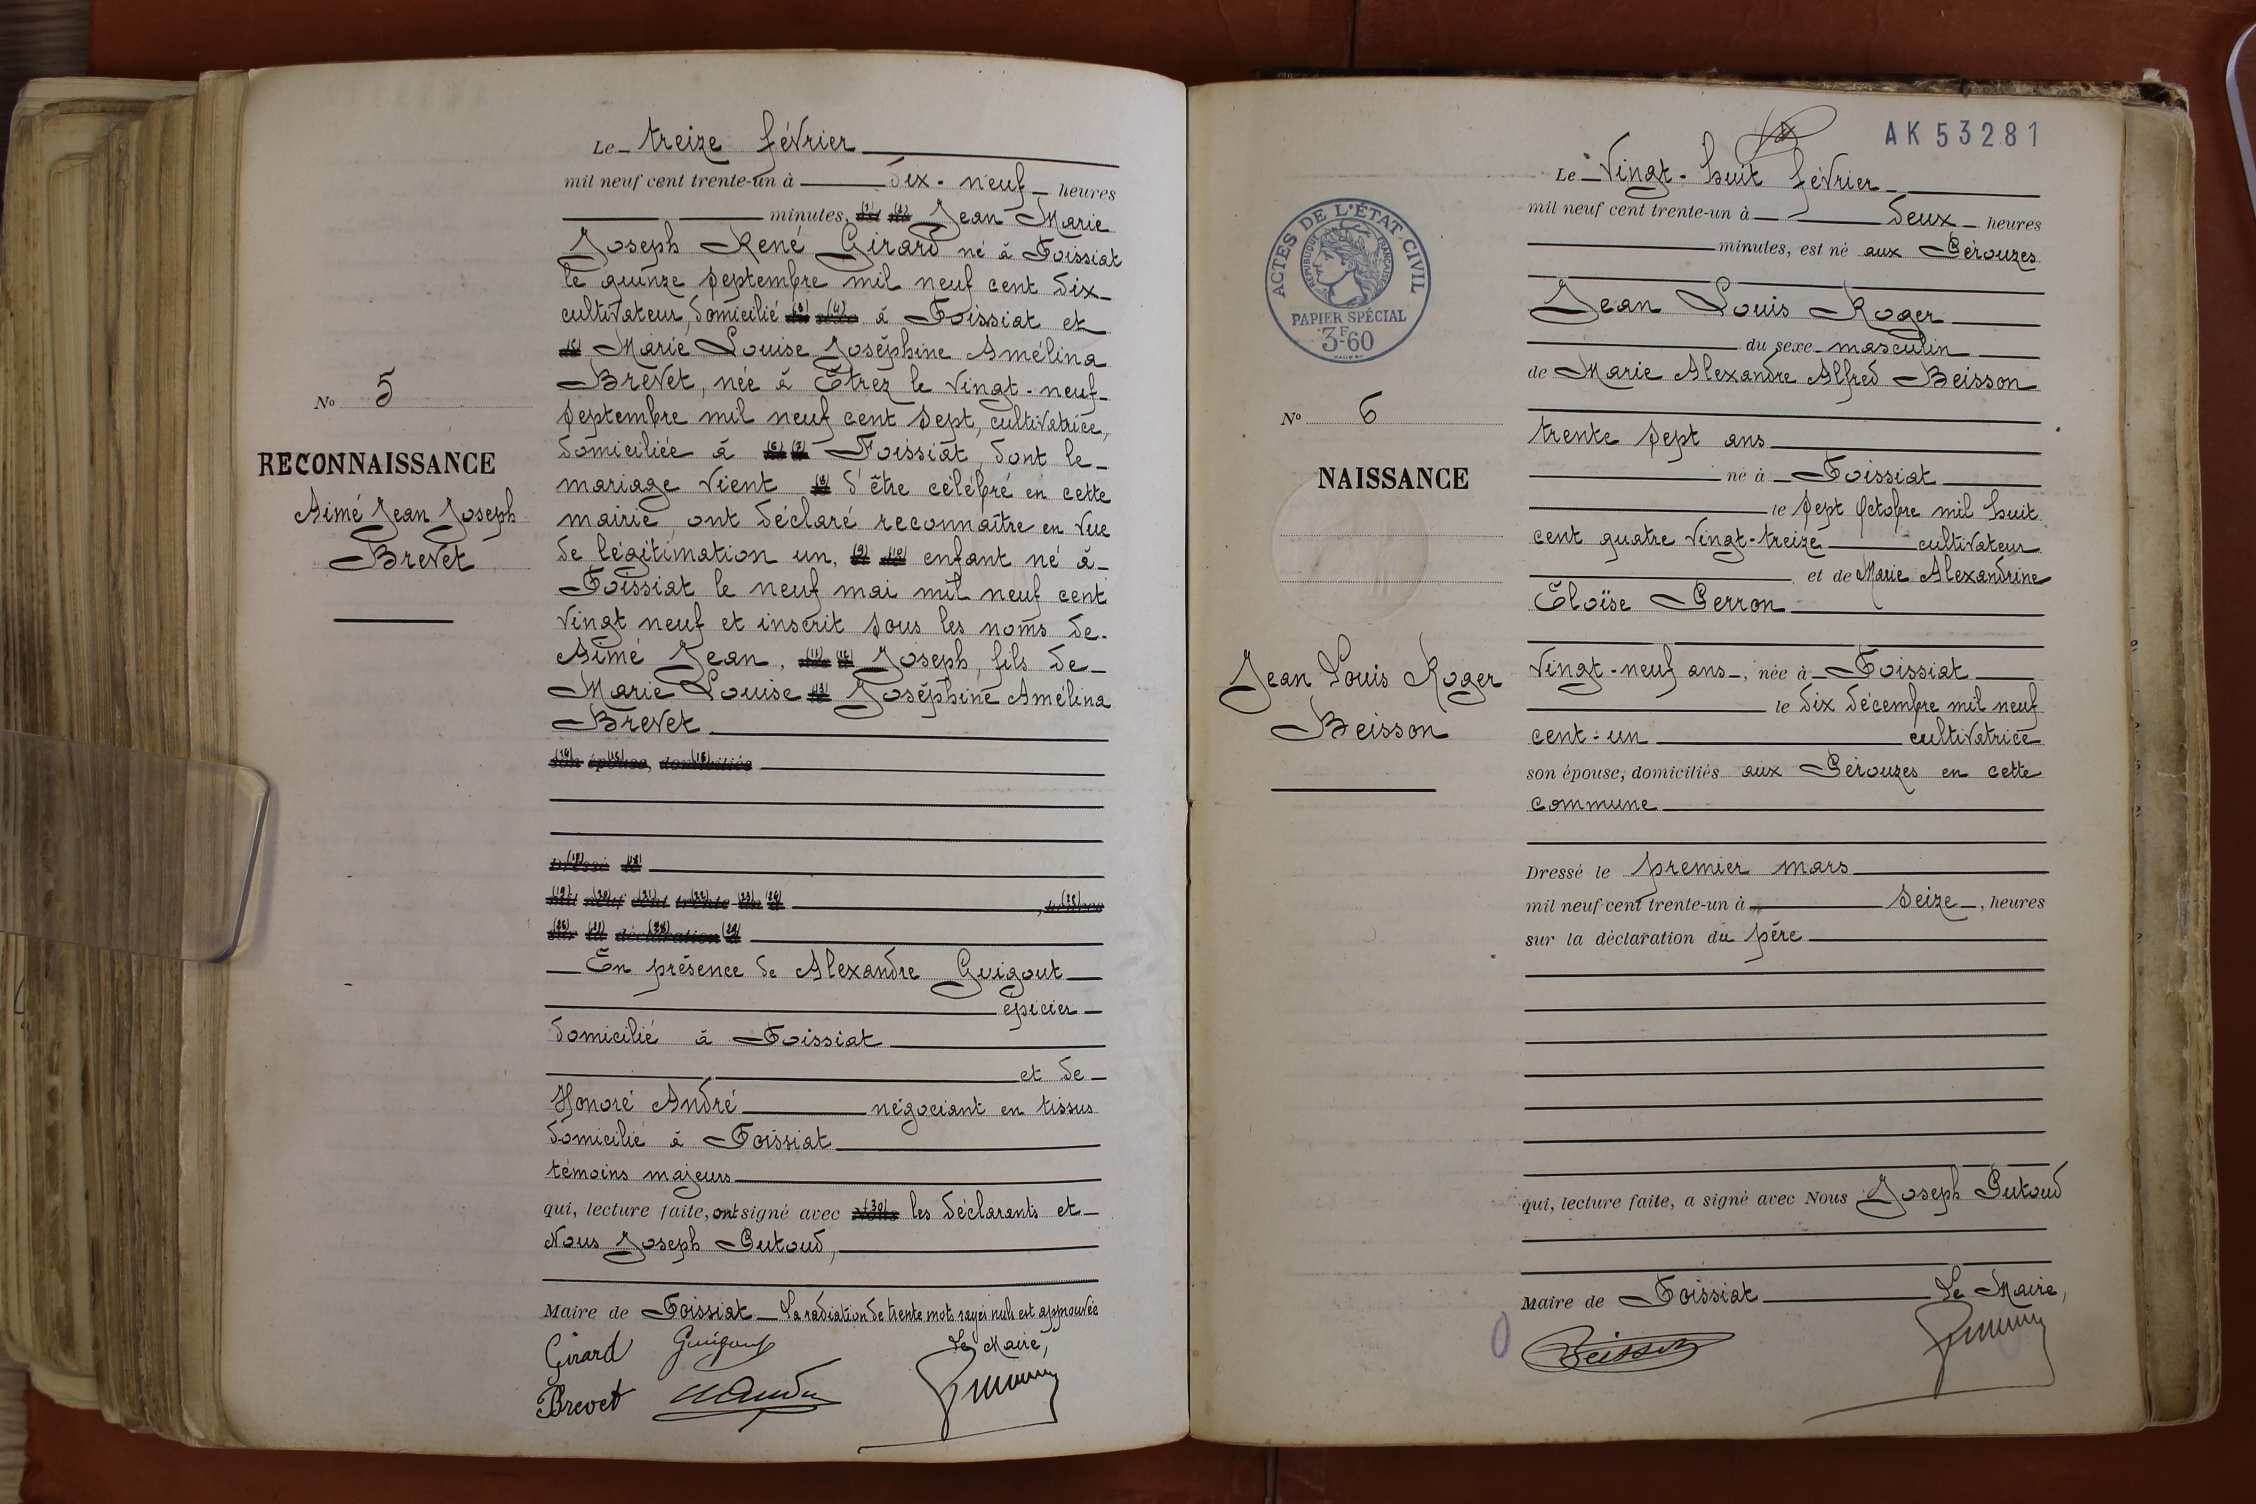 Le treize février
mil neuf cent trente-un à dix-neuf heures
minutes, (1) (2) Jean Marie
Joseph René Girard né à Foissiat
le quinze septembre mil neuf cent dix
cultivateur, domicilié (3) (4) à Foissiat et
(5) Marie Louise Joséphine Amélina
Brevet, née à Étrez le vingt-neuf
septembre mil neuf cent sept, cultivatrice,
domiciliée à (6) (7) Foissiat, dont le
mariage vient (8) d'être célébré en cette
mairie, ont déclaré reconnaître en vue
de légitimation un, (9) (10) enfant né à
Foissiat le neuf mai mil neuf cent
vingt neuf et inscrit sous les noms de
Aimé Jean, (11) (12) Joseph, fils de
Marie Louise (13) Joséphine Amélina
Brevet
(14) son (15) épouse, (16) domiciliés
(17) Dressé (18) le
(19) mil (20) neuf (21) cent (22) trente (23) un (24) à , (25) heures
(26) sur (27) la (28) déclaration (29) d
En présence de Alexandre Guigout
épicier
domicilié à Foissiat
et de
Honoré André négociant en tissus
domicilié à Foissiat
témoins majeurs
qui, lecture faite, ont signé avec (30) Nous les déclarants et
Nous Joseph Putoud,
Maire de Foissiat La radiation de trente mots rayés nuls est approuvée
Girard Guigout Le Maire,
Brevet
No 5
RECONNAISSANCE
Aimé Jean Joseph
Brevet
AK 53281
Le Vingt-huit février
mil neuf cent trente-un à deux heures
minutes, est né aux Pérouzes
Jean Louis Roger
du sexe masculin
de Marie Alexandre Alfred Beisson
trente sept ans
né à Foissiat
le sept octobre mil huit
cent quatre vingt-treize cultivateur
et de Marie Alexandrine
Éloïse Perron
vingt-neuf ans, née à Foissiat
le dix décembre mil neuf
cent-un cultivatrice
son épouse, domiciliés aux Pérouzes en cette
commune
Dressé le premier mars
mil neuf cent trente-un à seize, heures
sur la déclaration du père
qui, lecture faite, a signé avec Nous Joseph Putoud
Maire de Foissiat Le Maire,
Beisson
ACTES DE L'ÉTAT-CIVIL
RÉPUBLIQUE FRANÇAISE
PAPIER SPÉCIAL
3F60
No 6
NAISSANCE
Jean Louis Roger
Beisson